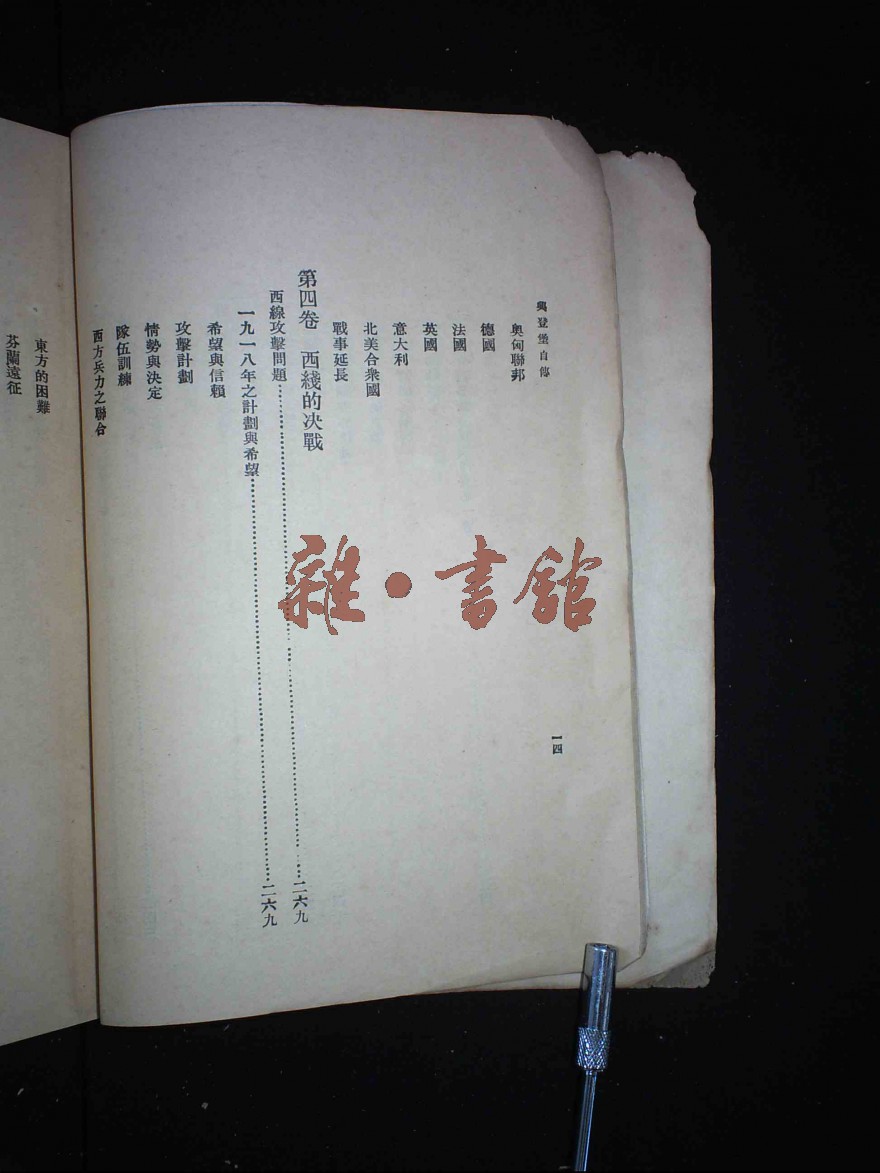 興登堡自傳
一四
奧匈聯邦
德國
法國
英國
意大利
北美合衆國
戰事延長
第四卷 西綫的決戰
西線攻擊問題……二六九
一九一八年之計劃與希望……二六九
希望與信賴
攻擊計劃
情勢與決定
隊伍訓練
西方兵力之聯合
東方的困難
芬蘭遠征
雜·書館